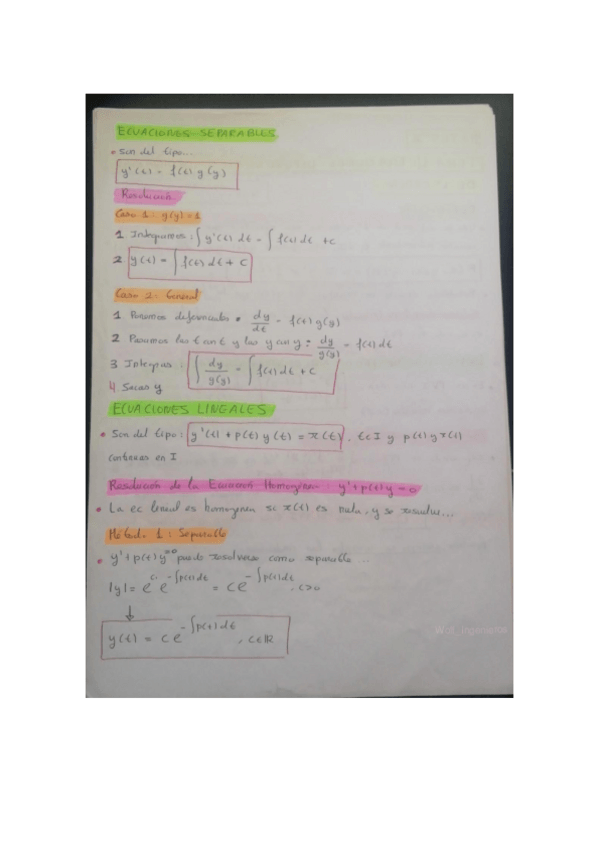 ECUACIONES SEPARABLES
• Son del tipo...
y'(t) = f(t) g(y)
Resolución.
Caso 1: g(y) = 1
1 Integramos: ∫ y'(t) dt = ∫ f(t) dt + c
2 y(t) = ∫ f(t) dt + c
Caso 2: General
1 Ponemos diferenciales • dy/dt = f(t) g(y)
2 Pasamos las t con t y las y con y: dy/g(y) = f(t) dt
3 Integras: ∫ dy/g(y) = ∫ f(t) dt + c
4 Sacas y
ECUACIONES LINEALES
• Son del tipo: y'(t) + p(t) y(t) = r(t), t∈I y p(t) y r(t)
continuas en I
Resolución de la Ecuación Homogénea: y' + p(t) y = 0
• La ec lineal es homogénea si r(t) es nula, y se resuelve...
Método 1: Separable
• y' + p(t) y = 0 puede resolverse como separable...
|y| = e^c e^-∫p(t)dt = c e^-∫p(t)dt, c>0
↓
y(t) = c e^-∫p(t)dt, c∈ℝ